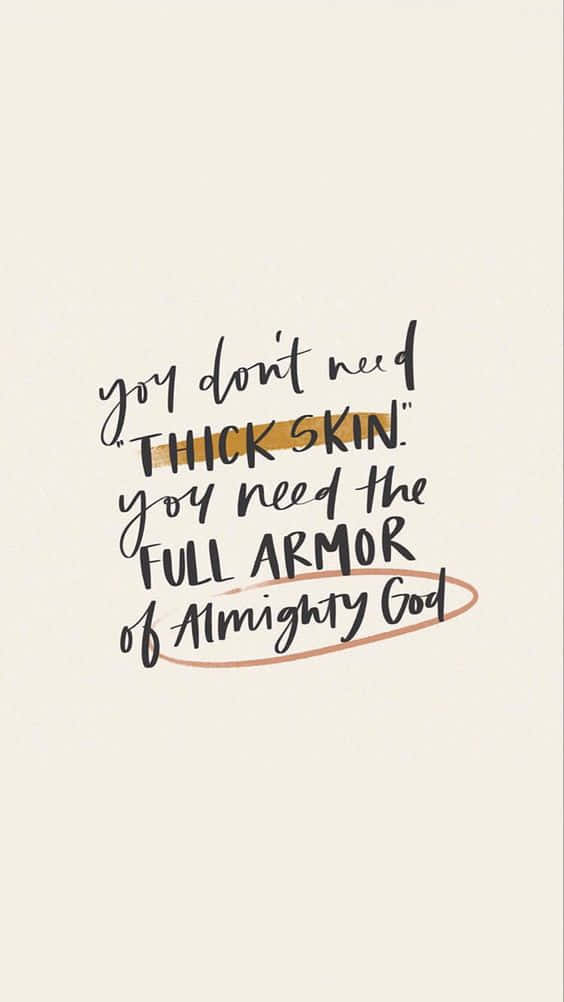 you don't need
"THICK SKIN."
you need the
FULL ARMOR
of Almighty God